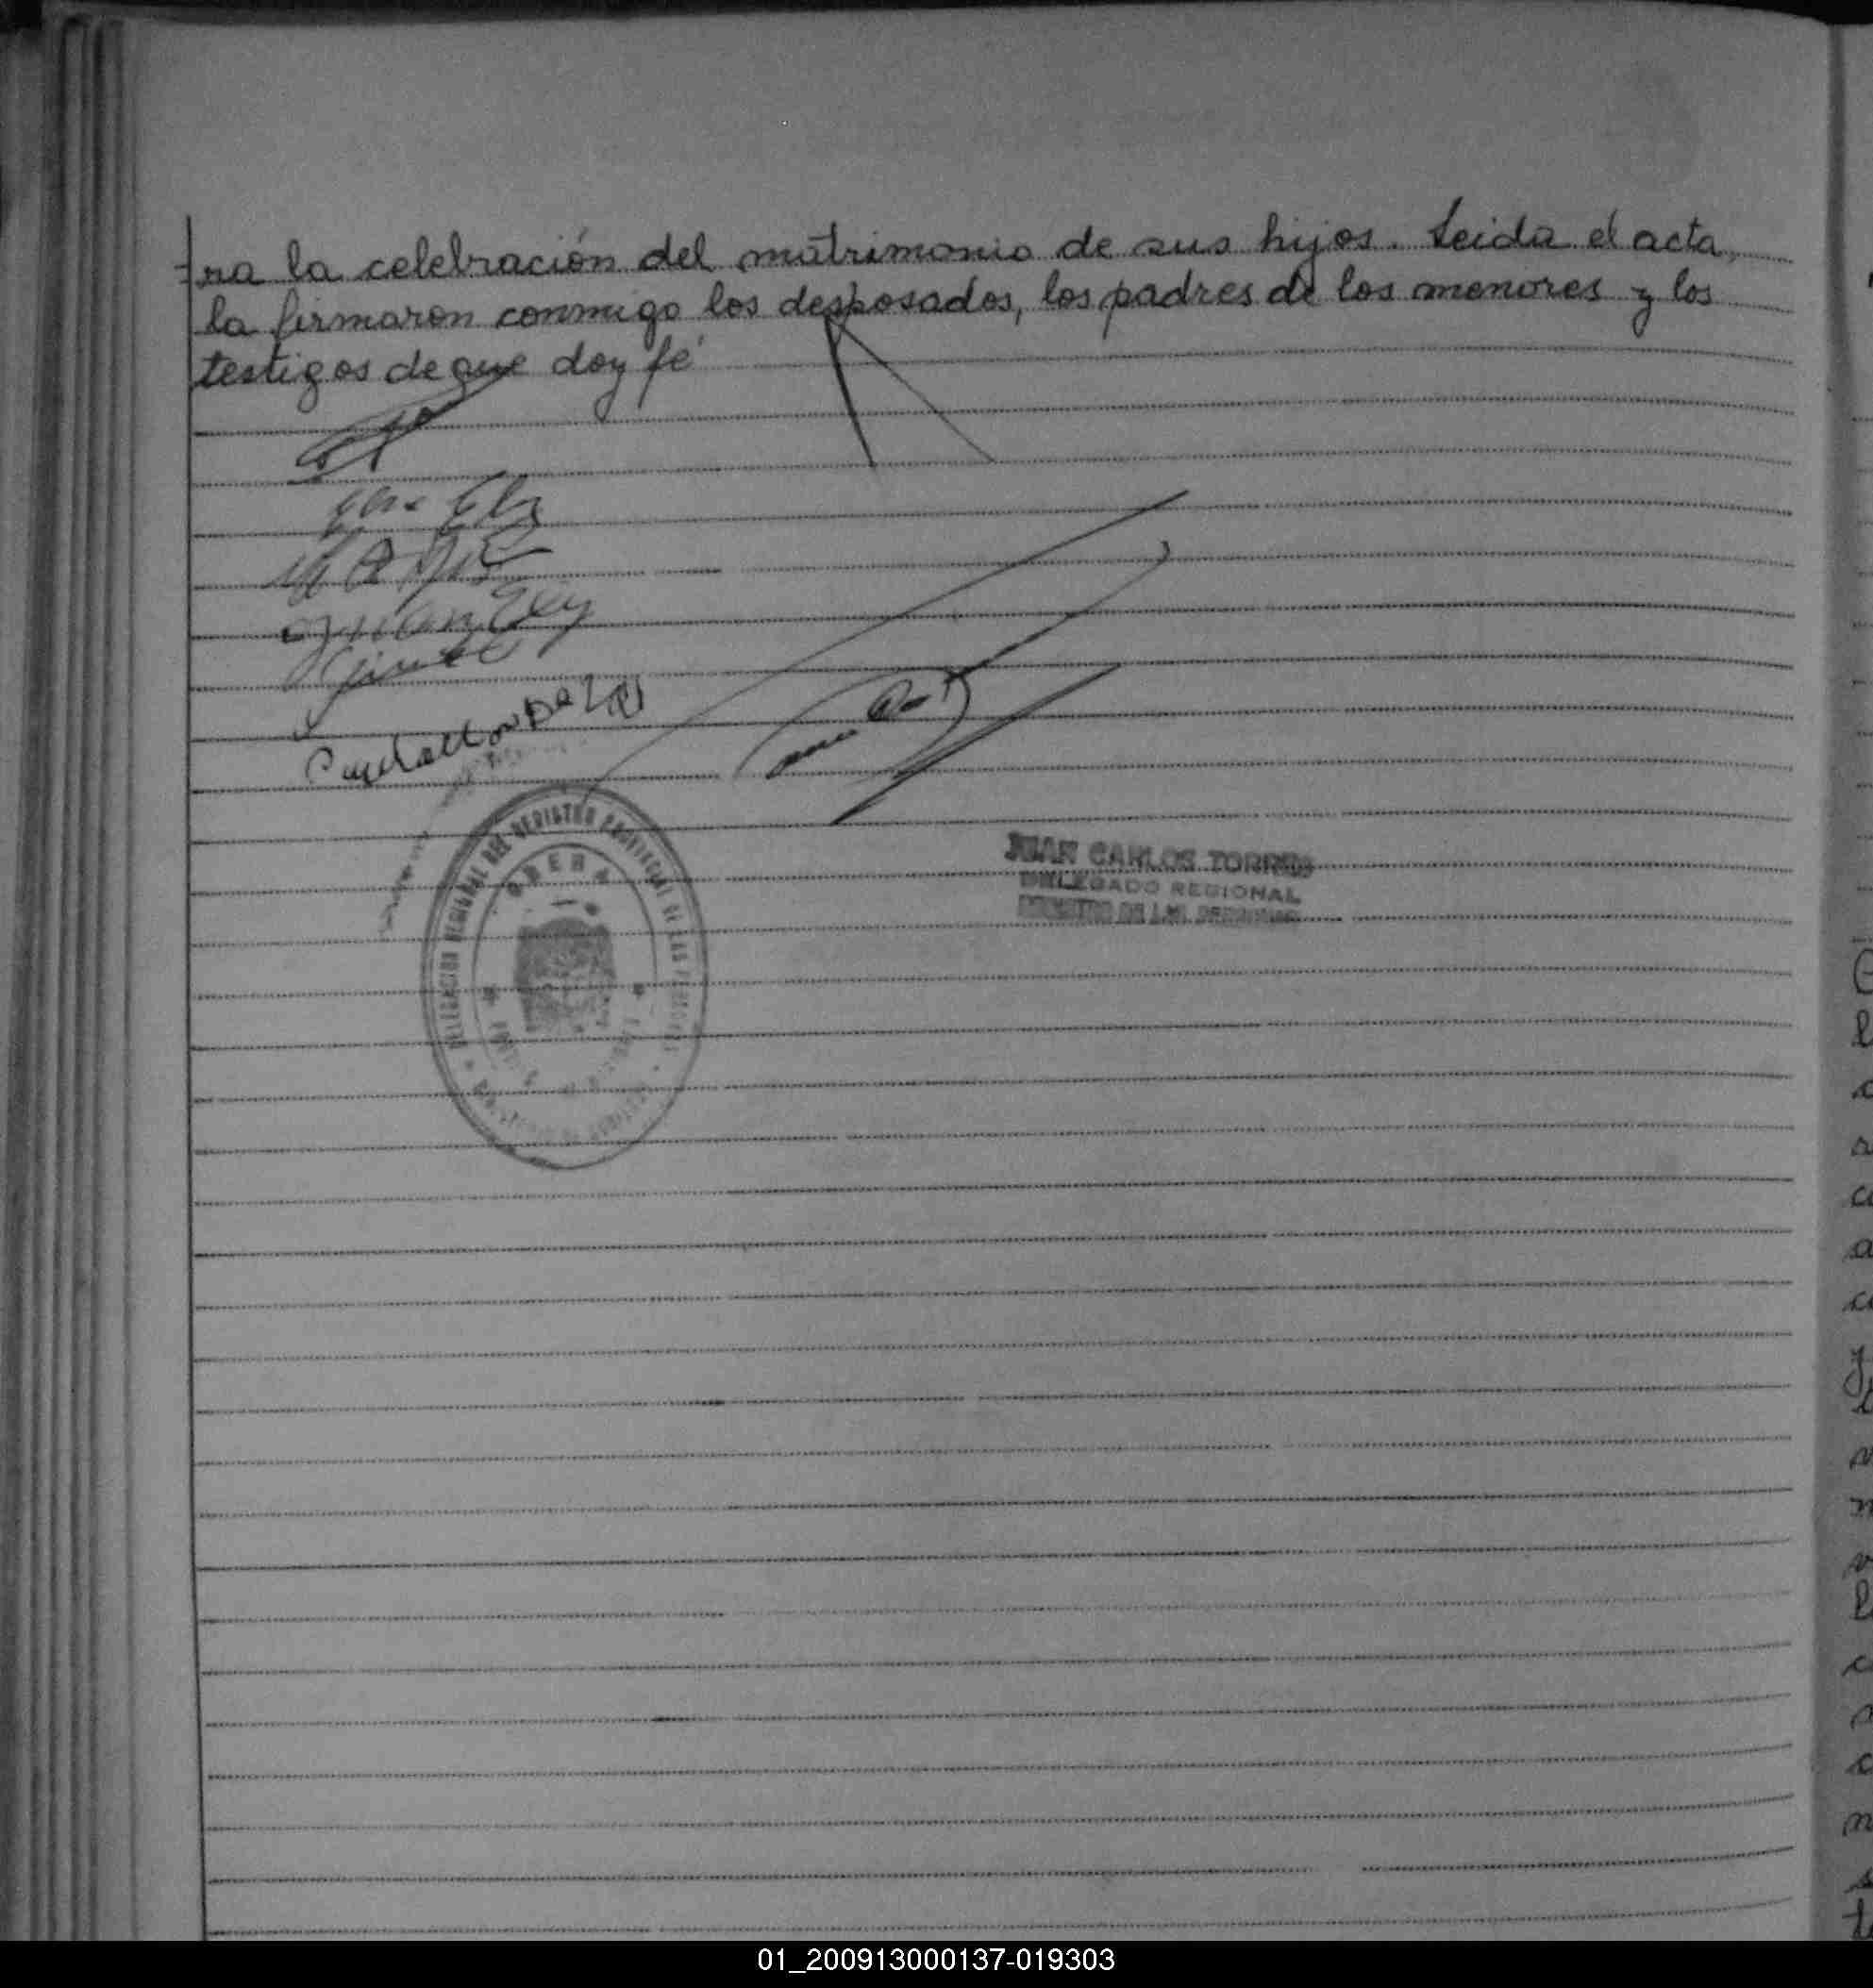 =ra la celebración del matrimonio de sus hijos. Leida el acta,
la firmaron conmigo los desposados, los padres de los menores y los
testigos de que doy fé
DELEGACION REGIONAL DEL REGISTRO PROVINCIAL DE LAS PERSONAS
OBERA
JUAN CARLOS TORRES
DELEGADO REGIONAL
REGISTRO DE LAS PERSONAS
01_200913000137-019303